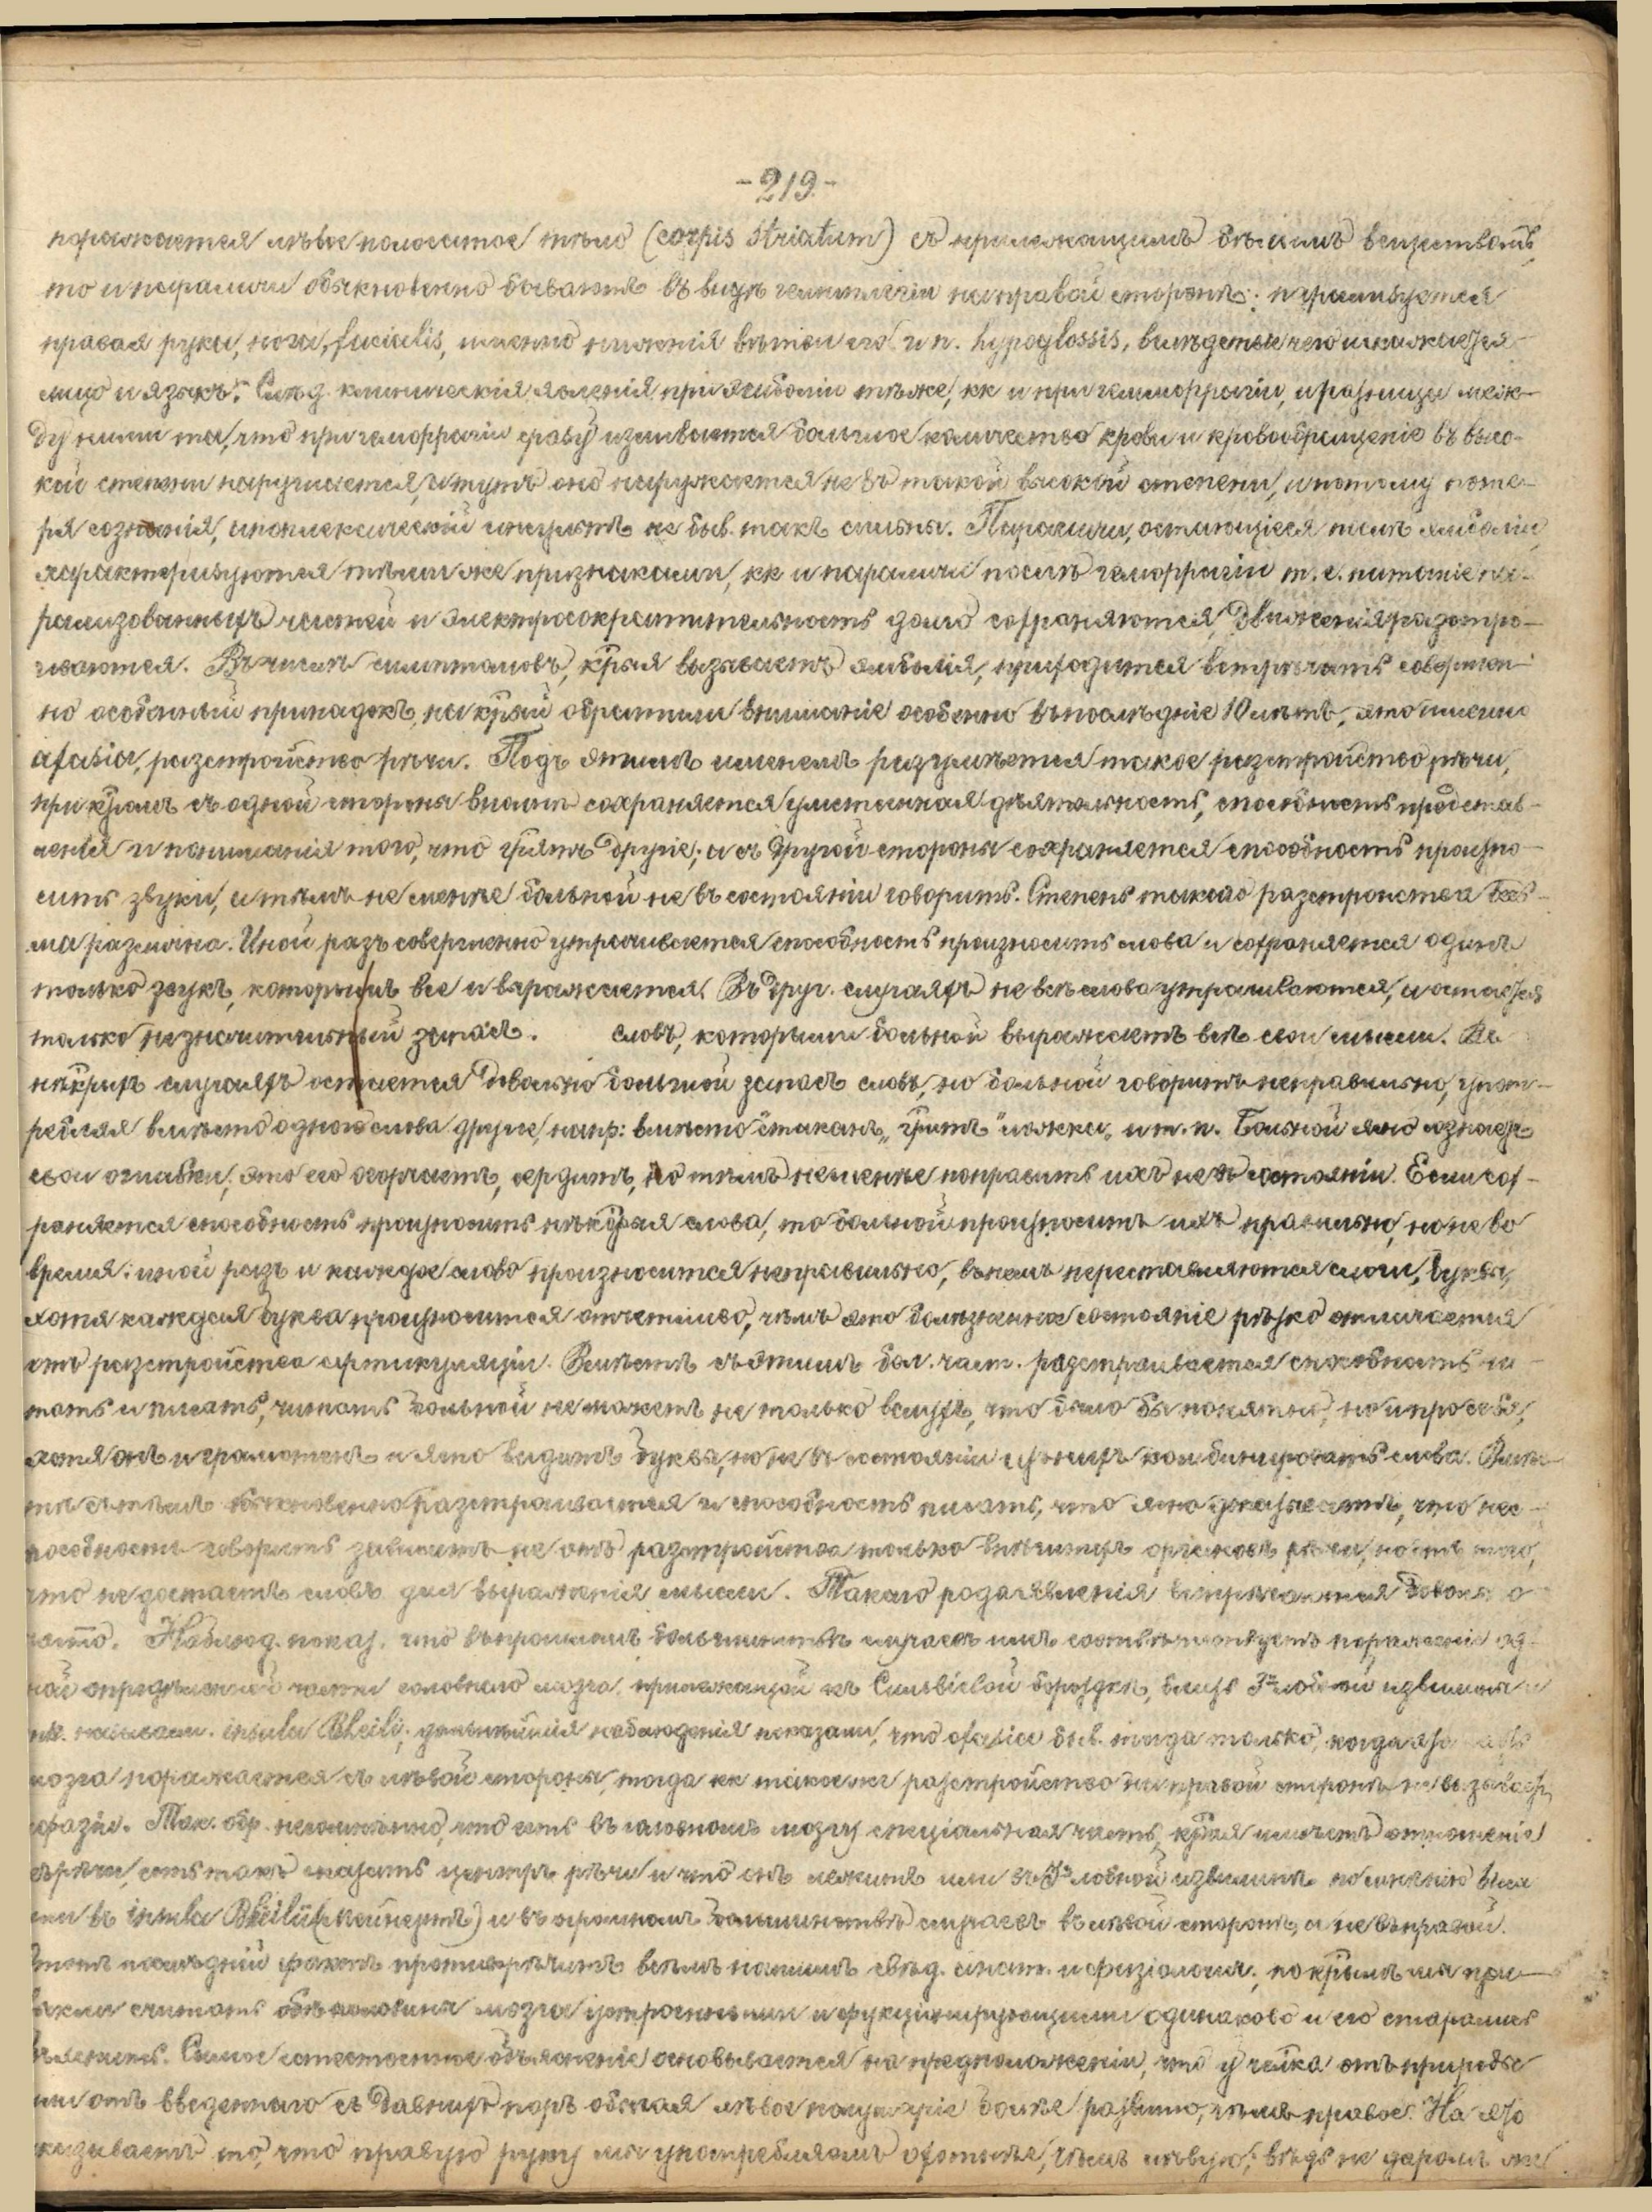 -219-
поражается лѣвое полосатое тѣло (corpis striatum) съ прилежащимъ бѣлымъ веществомъ,
то и параличи обыкновенно бываютъ въ видѣ гемиплегіи на правой сторонѣ: парализуется
правая рука, нога, facialis, именно нижнія вѣтви его и n. hypoglossis, вслѣдствіе чего искажается
лицо и языкъ. Слѣд. клиническія явленія при эмболіи тѣже, кк и при геморрагіи, и разница меж-
ду ними та, что при геморрагіи сразу изливается большое количество крови и кровообращеніе въ высо-
кой степени нарушается, а тутъ оно нарушается не въ такой высокой степени, и потому поте-
ря сознанія, апоплексическій инсультъ не быв. такъ сильны. Параличи, остающіеся послѣ эмболіи,
характеризуются тѣми же признаками, кк и параличи послѣ геморрагіи т.е. питаніе па-
рализованныхъ частей и электросократительность долго сохраняются, движенія разстро-
иваются. Въ числѣ симптомовъ, крыя вызываетъ эмболія, приходится встрѣчать совершен-
но особенный припадокъ, на крый обратили вниманіе особенно въ послѣдніе 10 лѣтъ, это именно
afasia, разстройство рѣчи. Подъ этимъ именемъ разумѣется такое разстройство рѣчи,
при кромъ съ одной стороны вполнѣ сохраняется умственная дѣятельность, способность представ-
ленія и пониманія того, что грятъ другіе; а съ другой стороны сохраняется способность произно-
сить звуки, и тѣмъ не менѣе больной не въ состояніи говорить. Степень такого разстройства весь-
ма различна. Иной разъ совершенно утрачивается способность произносить слова и сохраняется одинъ
только звукъ, которымъ все и выражается. Въ друг. случаяхъ не всѣ слова утрачиваются, а остается
только незначительный запасъ. словъ, которыми больной выражаетъ всѣ свои мысли. Въ
нѣкрыхъ случаяхъ остается довольно большой запасъ словъ, но больной говоритъ неправильно, упот-
ребляя вмѣсто одного слова другіе, напр: вмѣсто "стаканъ" гритъ "ложка" и т.п. Больной ясно сознаетъ
свои ошибки, это его огорчаетъ, сердитъ, но тѣмъ не менѣе поправить ихъ не въ состояніи. Если сох-
раняется способность произносить нѣкрыя слова, то больной произноситъ ихъ правильно, но не во
время: иной разъ и каждое слово произносится неправильно, въ немъ переставляются слоги, буквы,
хотя каждая буква произносится отчетливо, чѣмъ это болѣзненное состояніе рѣзко отличается
отъ разстройства артикуляціи. Вмѣстѣ съ этимъ бол. част. разстраивается способность чи-
тать и писать, читать больной не можетъ не только вслухъ, что было бы понятно, но и про себя,
хотя онъ и грамотенъ и ясно видитъ буквы, но не въ состояніи изъ нихъ комбинировать слова. Вмѣс-
тѣ съ тѣмъ обыкновенно разстраивается и способность писать, что ясно указываетъ, что нес-
пособность говорить зависитъ не отъ разстройства только внѣшнихъ органовъ рѣчи, но отъ того,
что не достаетъ словъ для выраженія мысли. Такого рода явленія встрѣчаются довольно
часто. Наблюд. показ. что въ прошломъ большинствѣ случаевъ имъ соотвѣтствуетъ пораженіе од-
ной опредѣленной части головного мозга, прилежащей къ Сильвіевой бороздкѣ, близь 3й лобной извилины и
т.н. называем. insula Rheili; дальнѣйшія наблюденія показали, что afasia быв. тогда только, когда эта часть
мозга поражается съ лѣвой стороны, тогда кк такое же разстройство на правой сторонѣ не вызываетъ
афазіи. Так. обр. несомнѣнно, что есть въ головномъ мозгу спеціальная часть, края имѣетъ отношеніе
къ рѣчи, есть такъ сказать центръ рѣчи и что онъ лежитъ или въ 3й лобной извилинѣ по мнѣнію
или въ insula Rheilii (Мейнертъ) и въ огромномъ большинствѣ случаевъ въ лѣвой сторонѣ, а не въ правой.
Этотъ послѣдній фактъ противорѣчитъ всѣмъ нашимъ свѣд. анат. и физіологич., по крымъ мы при-
выкли считать обѣ половины мозга устроенными и функціонирующими одинаково и его старались
объяснить. Самое естественное объясненіе основывается на предположеніи, что у члвка отъ природы
или отъ введеннаго съ давнихъ поръ обычая лѣвое полушаріе болѣе развито, чѣмъ правое. На это
указываетъ то, что правую руку мы употребляемъ охотнѣе, чѣмъ лѣвую; вѣдь не даромъ же